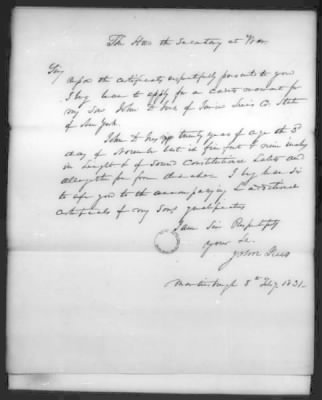 The Hon the Secretary at War
Sir,
Upon the certificate respectfully presented to you
I beg leave to apply for a cadets warrant for
my son John D of Lewis Co State
of New York.
John D was twenty years of age the 3d
day of November last is five feet & nine inches
in height & of sound Constitution habits and
altogether free from disease I beg leave sir
to refer you to the accompanying & additional
certificates of my sons qualifications
I am Sir Respectfully
yours &c.
Martinsburgh 8th Feby 1831